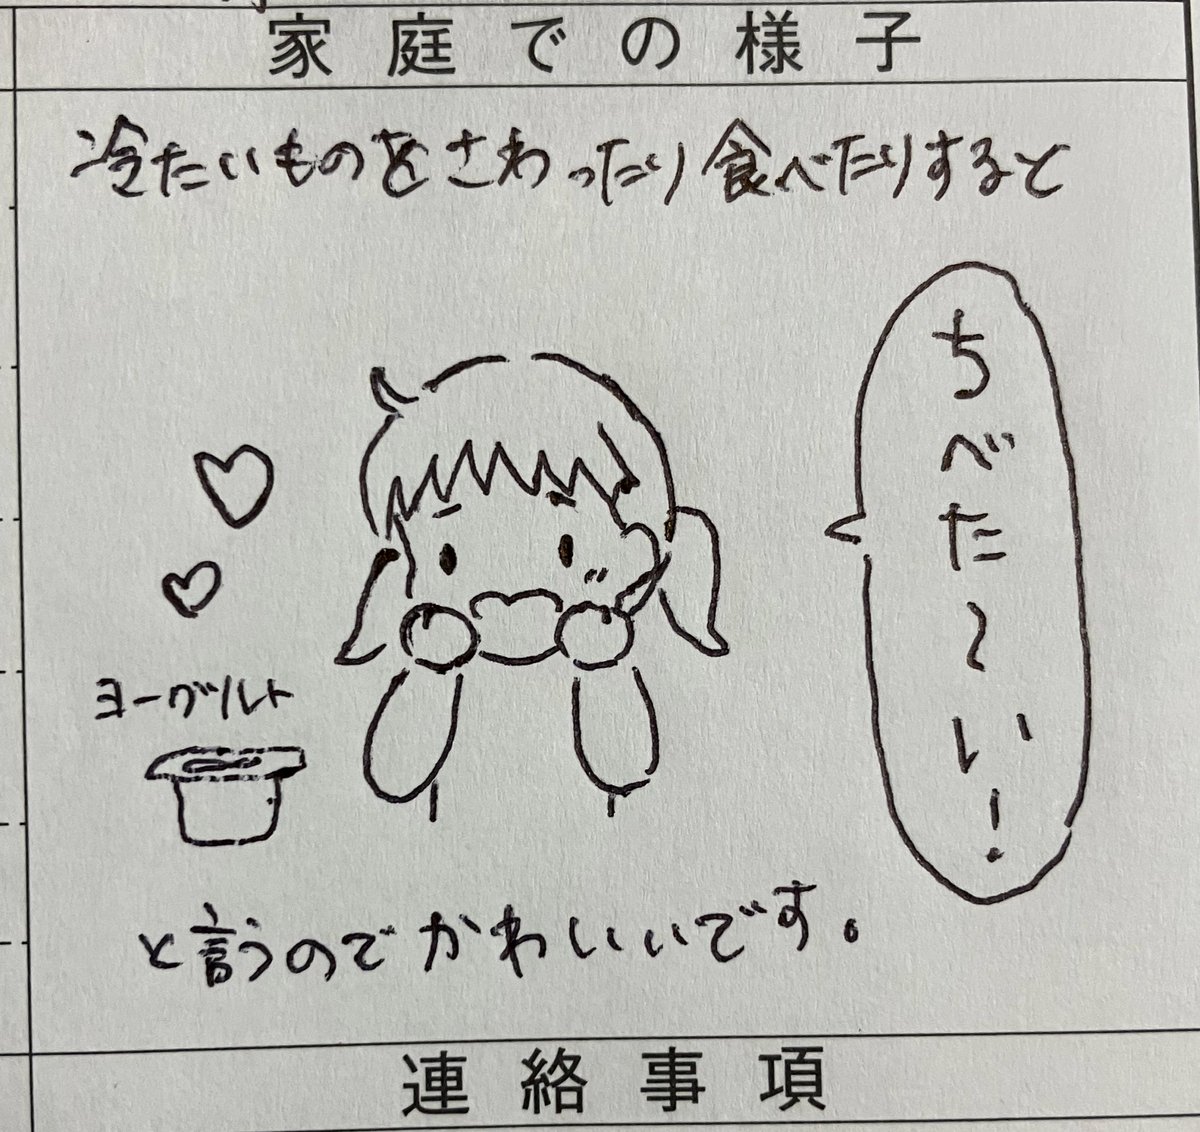 家庭での様子
冷たいものをさわったり食べたりすると
ちべた〜い!
ヨーグルト
と言うのでかわいいです。
連絡事項